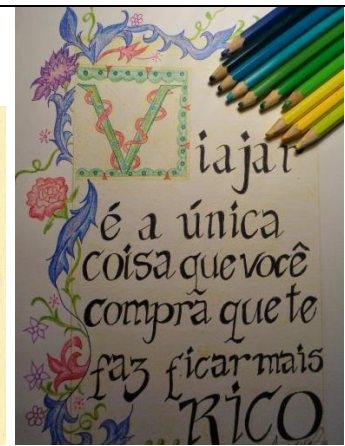 Viajar
é a única
coisa que você
compra que te
faz ficar mais
RICO